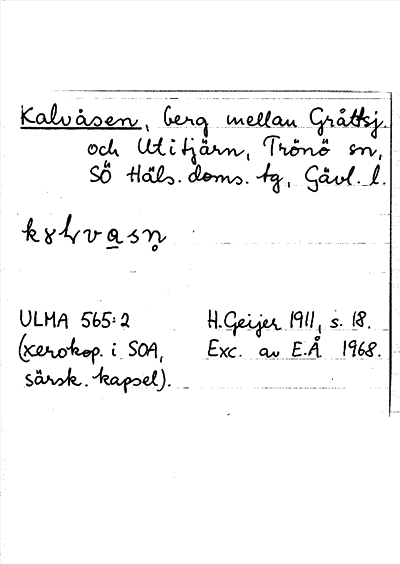 Kalvåsen, berg mellan Gråttsj.
och Utitjärn, Trönö sn,
SÖ Häls. doms. tg, Gävl. l.
ULMA 565:2 H. Geijer 1911, s. 18.
(xerokop. i SOA, Exc. av E.Å 1968.
särsk. kapsel).